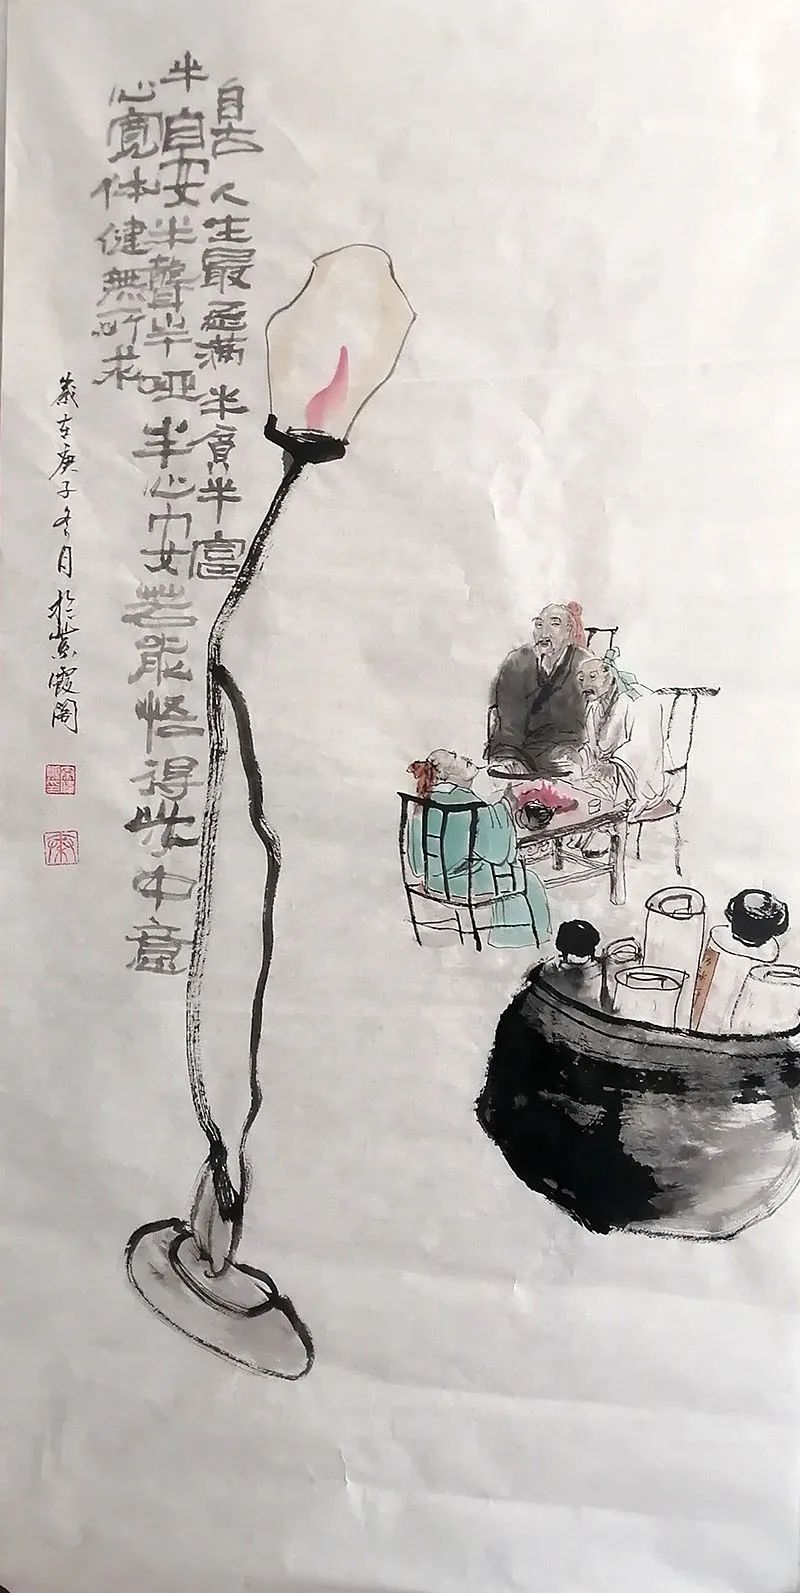 自古人生最忌满半貧半富
半自安半聾半啞半心安若能悟得此中意
心寬体健無所求
歲在庚子冬月於紫霞閣